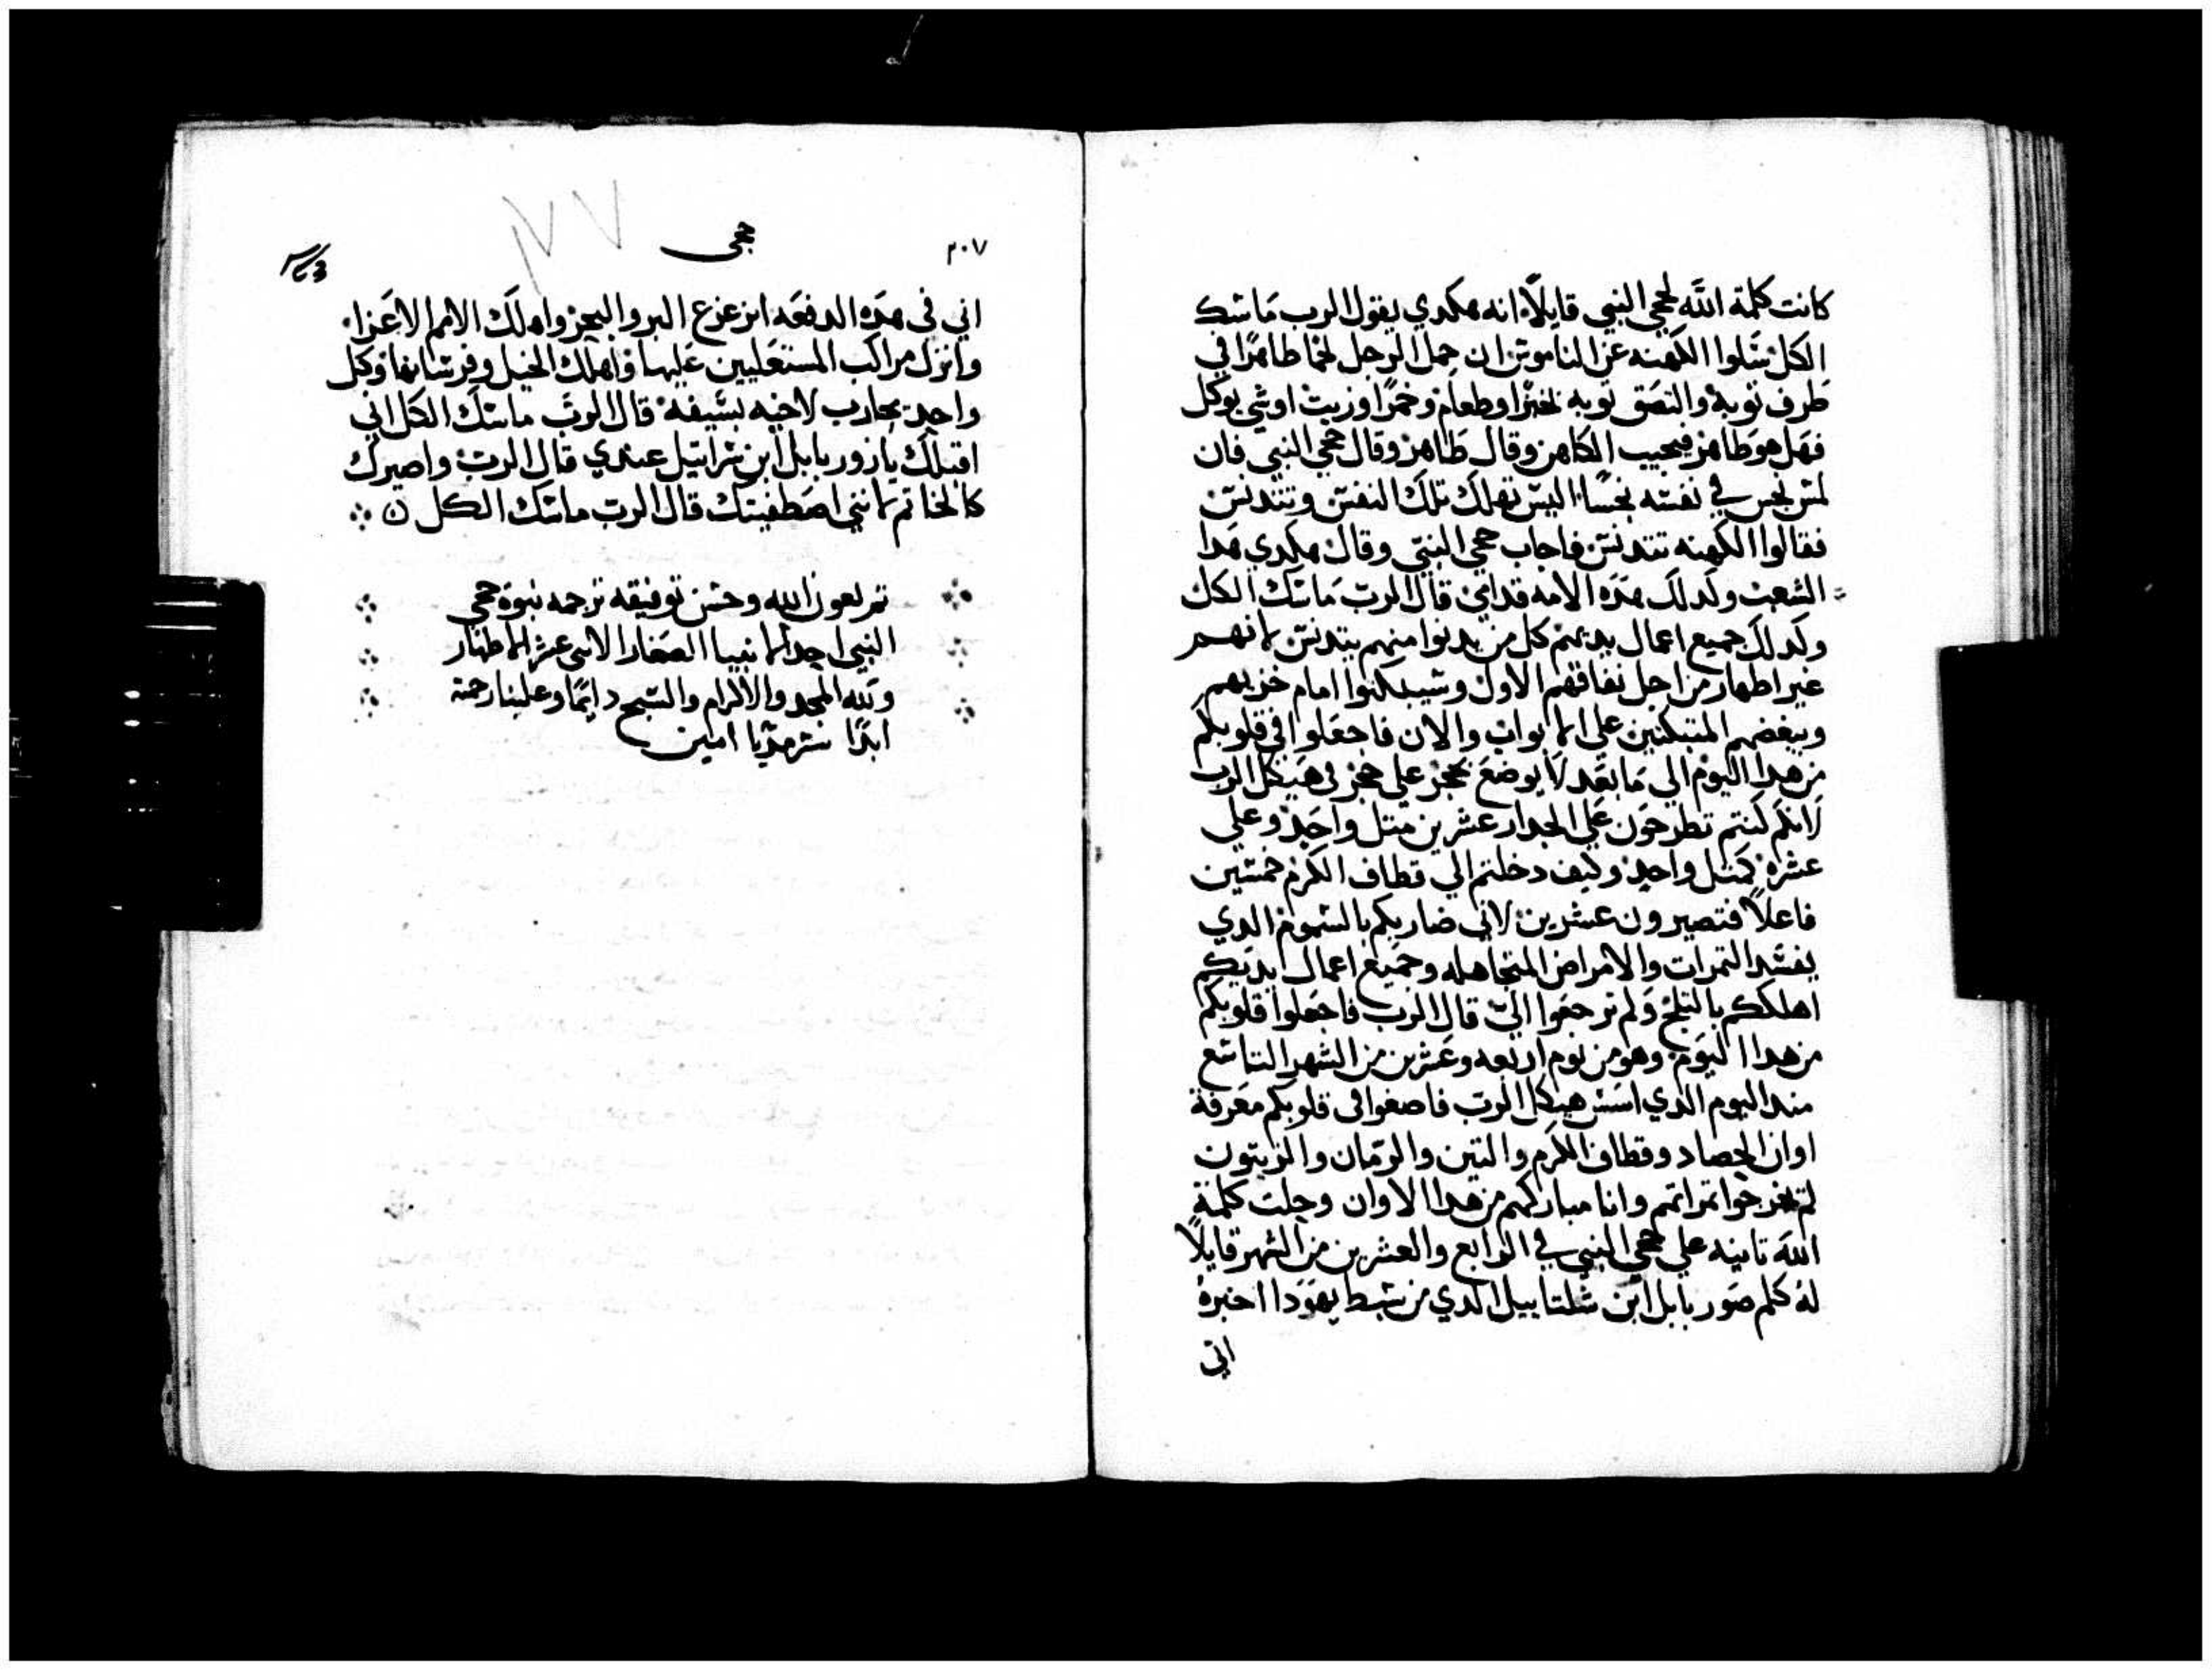 كانت كلمة الله لحجي النبي قايلاً انه هكدي يقول الرب ماسك
الكل سلوا الكهنه عن الناموس ان حمل الرجل لحما طاهرا في
طرف ثوبه والتصق ثوبه لخبزا وطعام وخمرا وزيت او شي يوكل
فهل هو طاهر فيجيب الكاهن وقال طاهر وقال حجي النبي فان
لمس نجس في نفسه نجسا اليس تهلك تلك النفس وتتدنس
فقالوا الكهنه تتدنس فاجاب حجي النبي وقال هكدي هدا
الشعب ولدلك هده الامه قدامي قال الرب ماسك الكل
ولدلك جميع اعمال يديهم كل من يدنوا منهم يتدنس لانهم
غير اطهار من اجل نفاقهم الاول وسيبكنوا امام خزيهم
وببغضهم المتبكتين على الابواب والان فاجعلوا في قلوبكم
من هدا اليوم الي ما بعد لا يوضع حجر علي حجر في هيكل الرب
لانكم كنتم تطرحون علي الجدار عشرين متل واحد وعلي
عشره كمتل واحد وكيف دخلتم الي قطاف الكرم خمسين
فاعلاً فتصيرون عشرين لاني ضاربكم بالسموم الدي
يفسد التمرات والامراض المتجاهله وجميع اعمال ايديكم
اهلككم بالتلج ولم ترجعوا الي قال الرب فاجعلوا قلوبكم
من هدا اليوم وهو من يوم اربعه وعشرين من الشهر التاسع
مند اليوم الدي اسس هيكل الرب فاصغوا في قلوبكم معرفة
اوان الحصاد وقطاف الكرم والتين والرمان والزيتون
لم تخرجوا تمراتهم وانا مباركهم من هدا الاوان وحلت كلمة
الله تانيه علي حجي النبي في الرابع والعشرين من الشهر قايلاً
له كلم صور بابل ابن شلتاييل الدي من سبط يهودا اخبره
اني
٢٠٧ حجى
اني في هده الدفعه ازعزع البر والبحر واهلك الامم الاعزا
وانزل مراكب المستعليين عليها واهلك الخيل وفرسانها وكل
واحد يحارب لاخيه بسيفه قال الرب ماسك الكل اني
اقبلك يا زور بابل ابن شراتيل عبدي قال الرب واصيرك
كالخاتم لانني اصطفيتك قال الرب ماسك الكل ن
تم بعون الله وحسن توفيقه ترجمه نبوة حجي
النبي احد الانبيا الصغار الاتنى عشر الاطهار
ولله المجد والاكرام والتسبح دايما وعلينا رحمته
ابدًا سرمديا امين